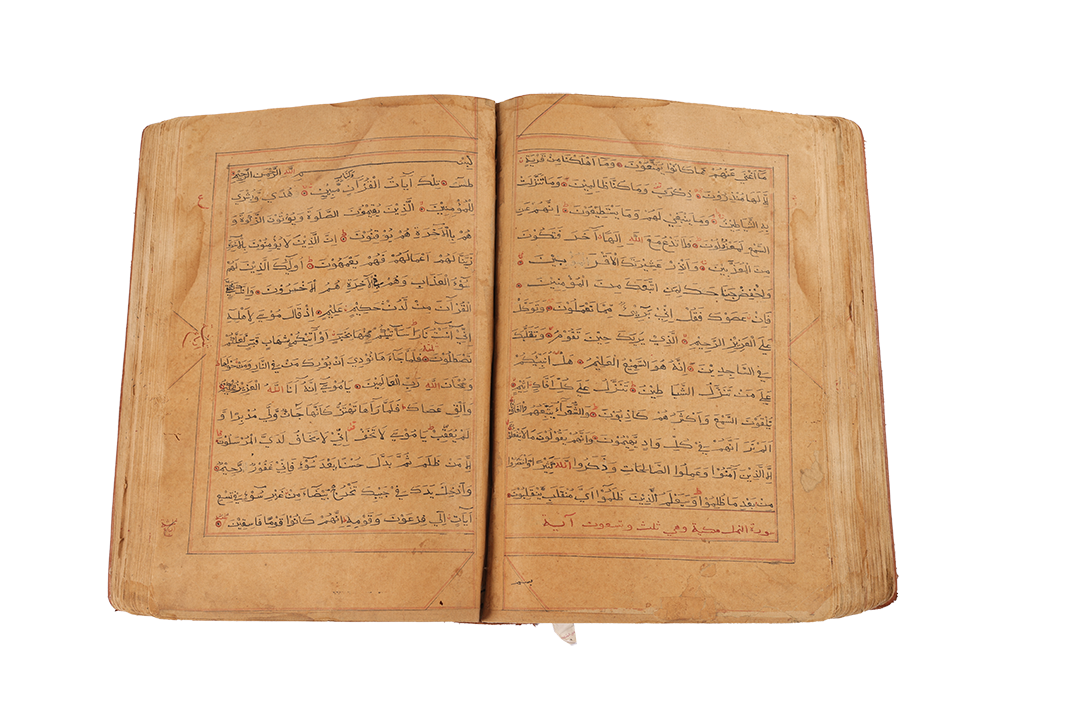 مَا أَغْنَى عَنْهُمْ مَا كَانُوا يُمَتَّعُونَ وَمَا أَهْلَكْنَا مِنْ قَرْيَةٍ
إِلَّا لَهَا مُنْذِرُونَ ذِكْرَى وَمَا كُنَّا ظَالِمِينَ وَمَا تَنَزَّلَتْ
بِهِ الشَّيَاطِينُ وَمَا يَنْبَغِي لَهُمْ وَمَا يَسْتَطِيعُونَ إِنَّهُمْ عَنِ
السَّمْعِ لَمَعْزُولُونَ فَلَا تَدْعُ مَعَ اللَّهِ إِلَهًا آخَرَ فَتَكُونَ
مِنَ الْمُعَذَّبِينَ وَأَنْذِرْ عَشِيرَتَكَ الْأَقْرَبِينَ
وَاخْفِضْ جَنَاحَكَ لِمَنِ اتَّبَعَكَ مِنَ الْمُؤْمِنِينَ
فَإِنْ عَصَوْكَ فَقُلْ إِنِّي بَرِيءٌ مِمَّا تَعْمَلُونَ وَتَوَكَّلْ
عَلَى الْعَزِيزِ الرَّحِيمِ الَّذِي يَرَاكَ حِينَ تَقُومُ وَتَقَلُّبَكَ
فِي السَّاجِدِينَ إِنَّهُ هُوَ السَّمِيعُ الْعَلِيمُ هَلْ أُنَبِّئُكُمْ
عَلَى مَنْ تَنَزَّلُ الشَّيَاطِينُ تَنَزَّلُ عَلَى كُلِّ أَفَّاكٍ أَثِيمٍ
يُلْقُونَ السَّمْعَ وَأَكْثَرُهُمْ كَاذِبُونَ وَالشُّعَرَاءُ يَتَّبِعُهُمُ الْغَاوُونَ
أَلَمْ تَرَ أَنَّهُمْ فِي كُلِّ وَادٍ يَهِيمُونَ وَأَنَّهُمْ يَقُولُونَ مَا لَا يَفْعَلُونَ
إِلَّا الَّذِينَ آمَنُوا وَعَمِلُوا الصَّالِحَاتِ وَذَكَرُوا اللَّهَ كَثِيرًا وَانْتَصَرُوا
مِنْ بَعْدِ مَا ظُلِمُوا وَسَيَعْلَمُ الَّذِينَ ظَلَمُوا أَيَّ مُنْقَلَبٍ يَنْقَلِبُونَ
سورة النمل مكية وهي ثلث وتسعون آية
بسم
بسم اللَّهِ الرَّحْمَنِ الرَّحِيمِ
طس تِلْكَ آيَاتُ الْقُرْآنِ وَكِتَابٍ مُبِينٍ هُدًى وَبُشْرَى
لِلْمُؤْمِنِينَ الَّذِينَ يُقِيمُونَ الصَّلَوةَ وَيُؤْتُونَ الزَّكَوةَ وَ
هُمْ بِالْآخِرَةِ هُمْ يُوقِنُونَ إِنَّ الَّذِينَ لَا يُؤْمِنُونَ بِالْآخِرَةِ
زَيَّنَّا لَهُمْ أَعْمَالَهُمْ فَهُمْ يَعْمَهُونَ أُولَئِكَ الَّذِينَ لَهُمْ
سُوءُ الْعَذَابِ وَهُمْ فِي الْآخِرَةِ هُمُ الْأَخْسَرُونَ وَإِنَّكَ لَتُلَقَّى
الْقُرْآنَ مِنْ لَدُنْ حَكِيمٍ عَلِيمٍ إِذْ قَالَ مُوسَى لِأَهْلِهِ
إِنِّي آنَسْتُ نَارًا سَآتِيكُمْ مِنْهَا بِخَبَرٍ أَوْ آتِيكُمْ بِشِهَابٍ قَبَسٍ لَعَلَّكُمْ
تَصْطَلُونَ فَلَمَّا جَاءَهَا نُودِيَ أَنْ بُورِكَ مَنْ فِي النَّارِ وَمَنْ حَوْلَهَا
وَسُبْحَانَ اللَّهِ رَبِّ الْعَالَمِينَ يَا مُوسَى إِنَّهُ أَنَا اللَّهُ الْعَزِيزُ الْحَكِيمُ
وَأَلْقِ عَصَاكَ فَلَمَّا رَآهَا تَهْتَزُّ كَأَنَّهَا جَانٌّ وَلَّى مُدْبِرًا وَ
لَمْ يُعَقِّبْ يَا مُوسَى لَا تَخَفْ إِنِّي لَا يَخَافُ لَدَيَّ الْمُرْسَلُونَ
إِلَّا مَنْ ظَلَمَ ثُمَّ بَدَّلَ حُسْنًا بَعْدَ سُوءٍ فَإِنِّي غَفُورٌ رَحِيمٌ
وَأَدْخِلْ يَدَكَ فِي جَيْبِكَ تَخْرُجْ بَيْضَاءَ مِنْ غَيْرِ سُوءٍ فِي تِسْعِ
آيَاتٍ إِلَى فِرْعَوْنَ وَقَوْمِهِ إِنَّهُمْ كَانُوا قَوْمًا فَاسِقِينَ